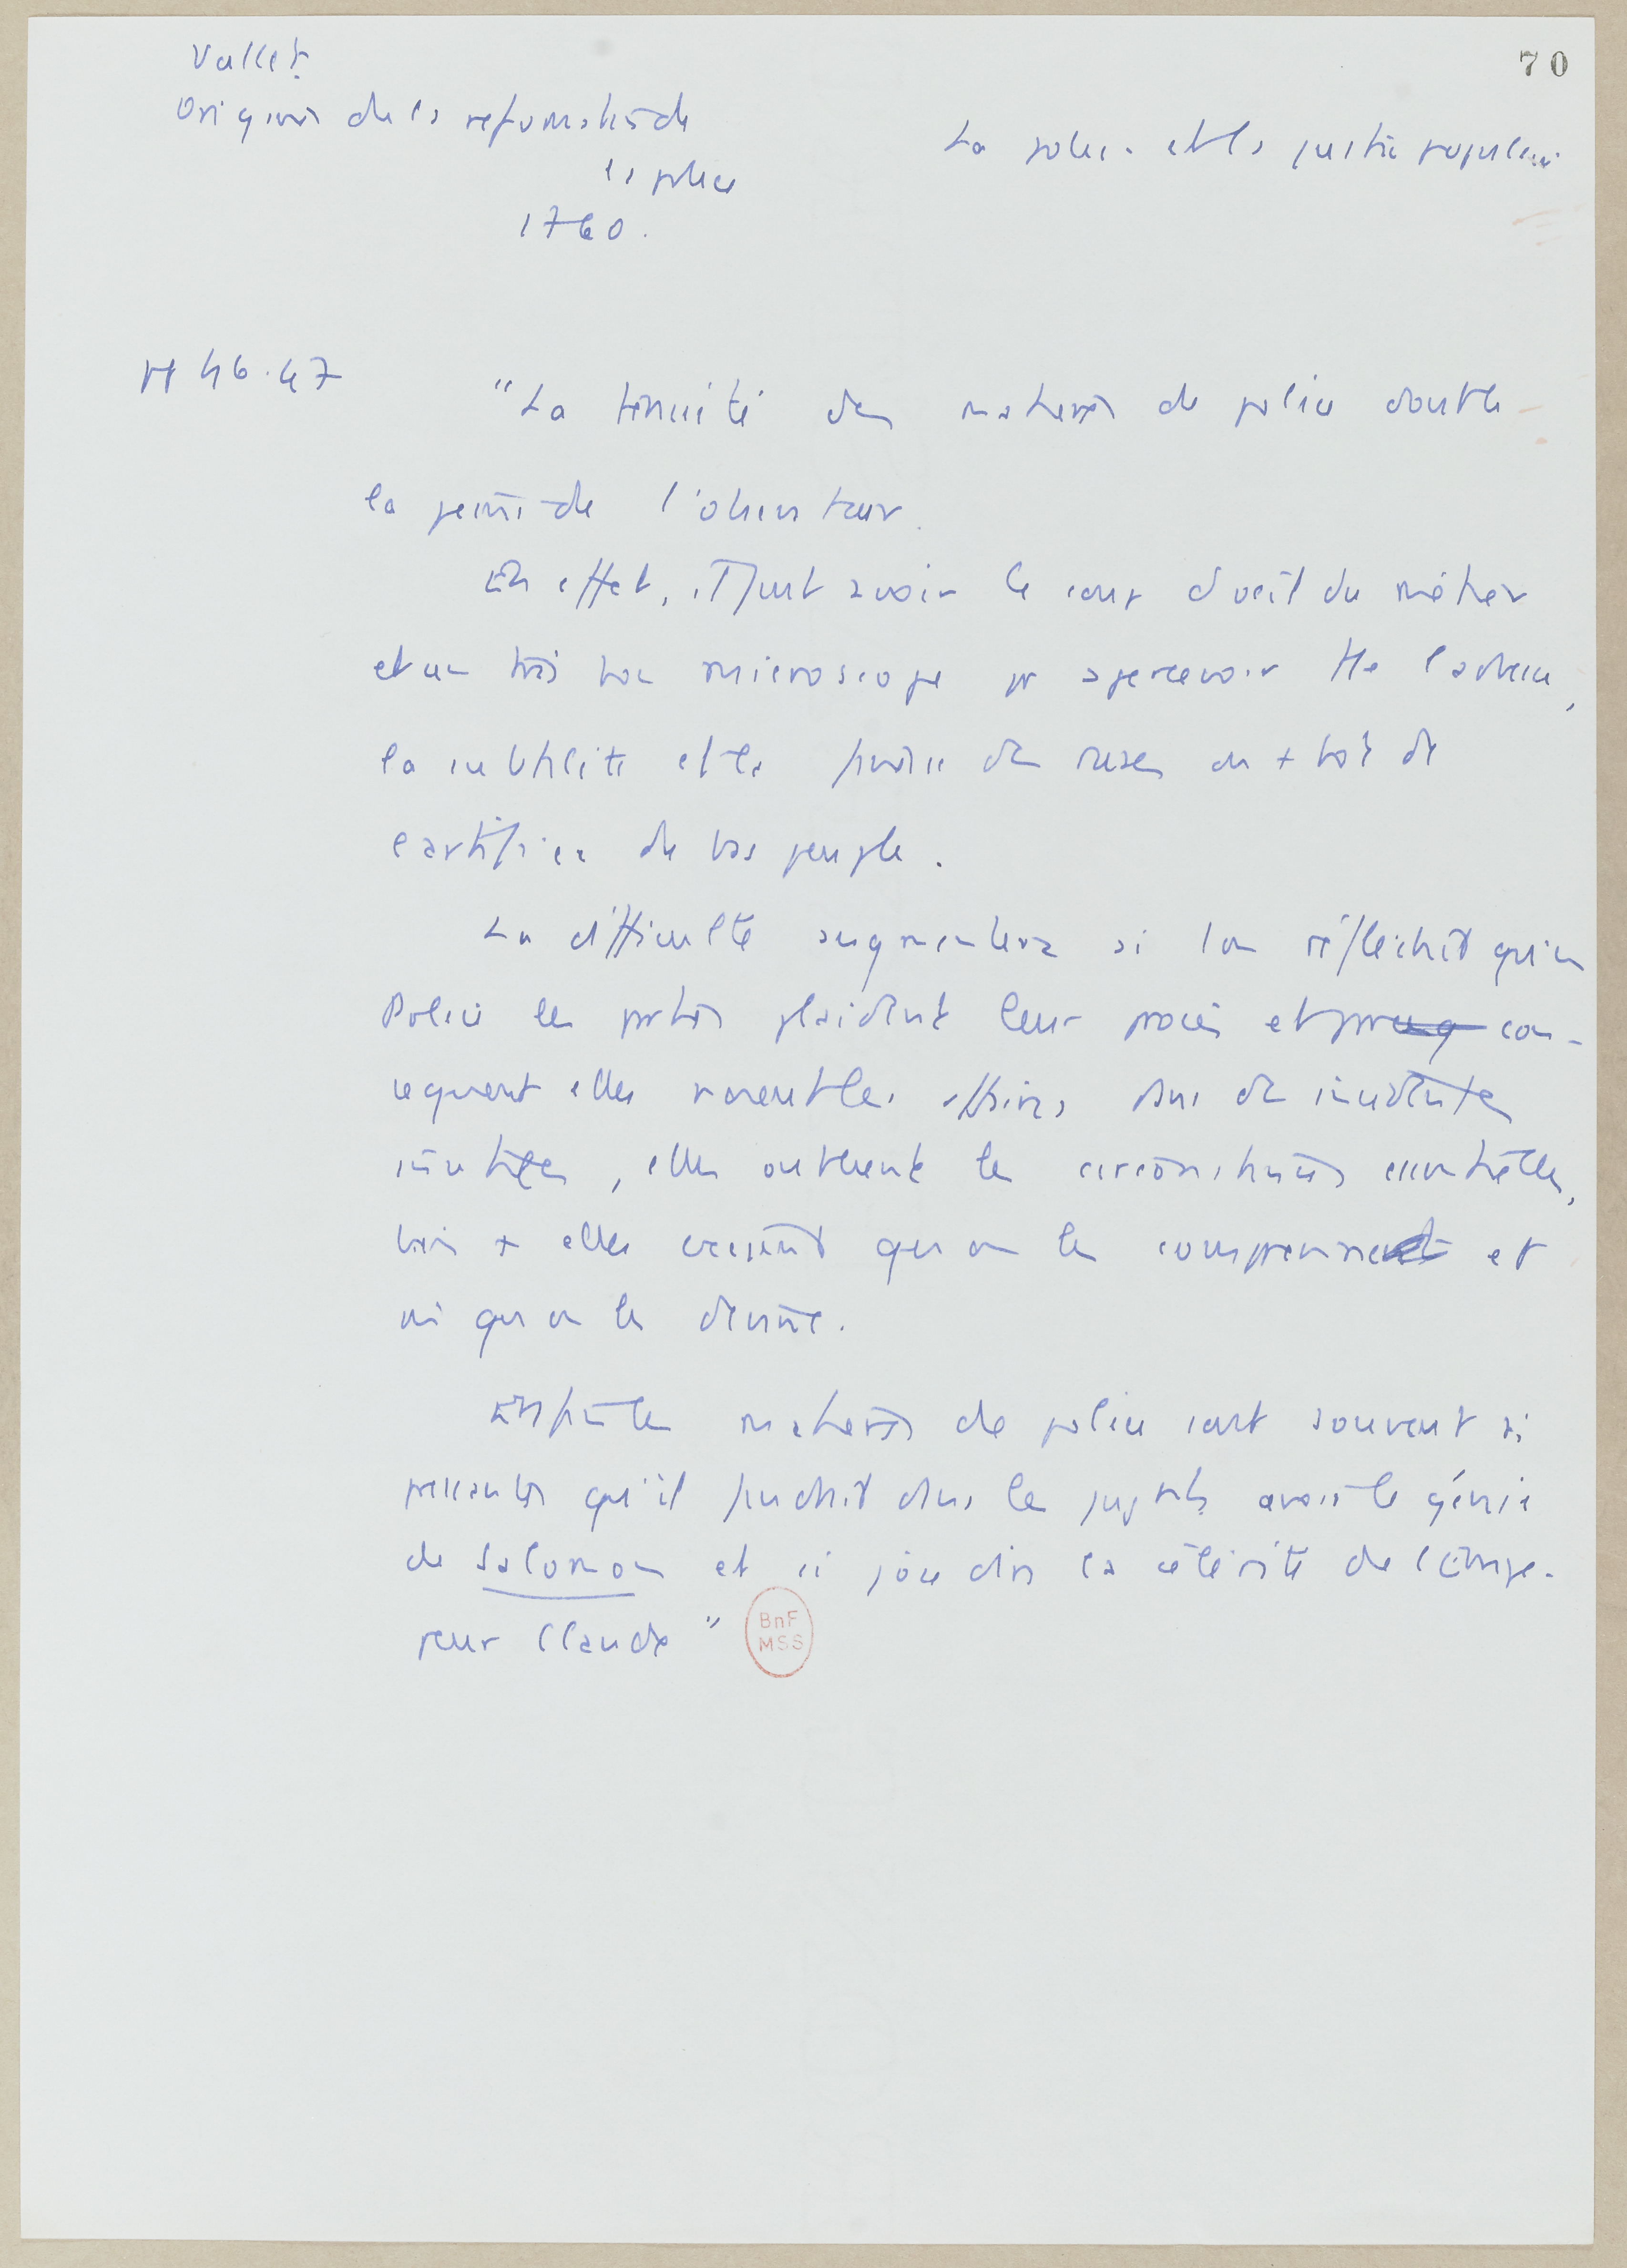 70
Vallet.
Origines de la reformation de
la police
1760.
La police et la justice populaire
pp 46.47
"La ténuité des matieres de police double
la peine de l'observateur.
En effet, il faut avoir le coup d'oeil du métier
et un très bon microscope pr apercevoir tte l'adresse,
la subtilité et la finesse des ruses du + bas de
l'artifice du bas peuple.
La difficulté augmentera si l'on réfléchit qu'en
Police les parties plaident leur procès et con-
sequent elles noyent les affaires dans des incidents
inutiles, elles oublient les circonstances essentielles,
bien + elles craignent qu'on les comprenne et
ni qu'on les devine.
Enfin les matieres de police sont souvent si
pressantes qu'il faudrait dans les jugements avoir le génie
de Salomon et y joindre la célérité de l'Empe-
reur Claude"
BnF
MSS